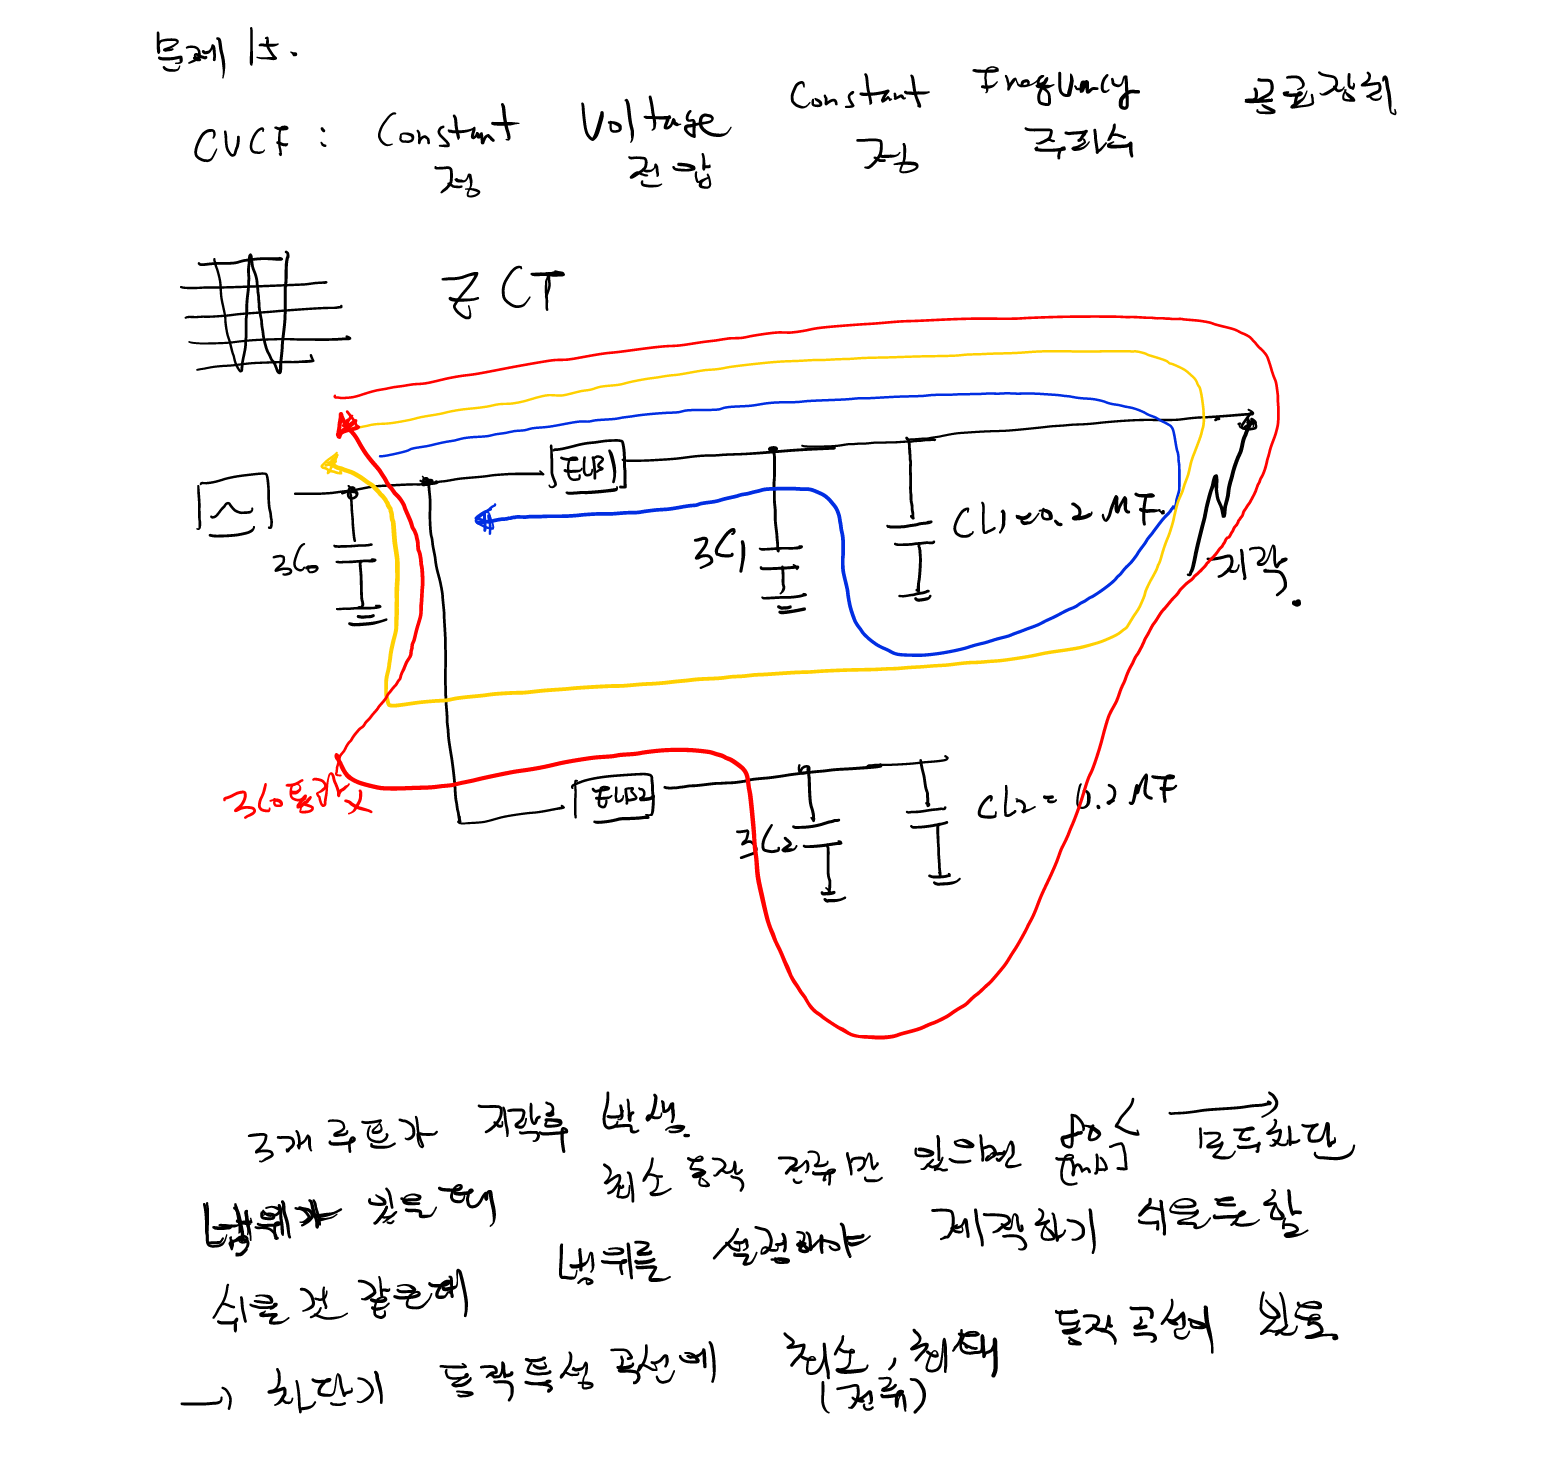 문제 15.
CVCF : Constant Voltage Constant Frequency 공급장치
정 전압 정 주파수
ZCT
ELB1
3C0
3C1
CL1=0.2MF.
지락.
3C0통과X
ELB2
3C2
CL2=0.2MF
3개 루트가 지락후 발생.
범위가 있을때 최소 동작 전류만 있으면 80< 모두차단
[mA]
쉬울 것 같은데 범위를 설정해야 제작하기 쉬울듯함
→ 차단기 동작특성 곡선에 최소, 최대 동작곡선이 있음.
(전류)